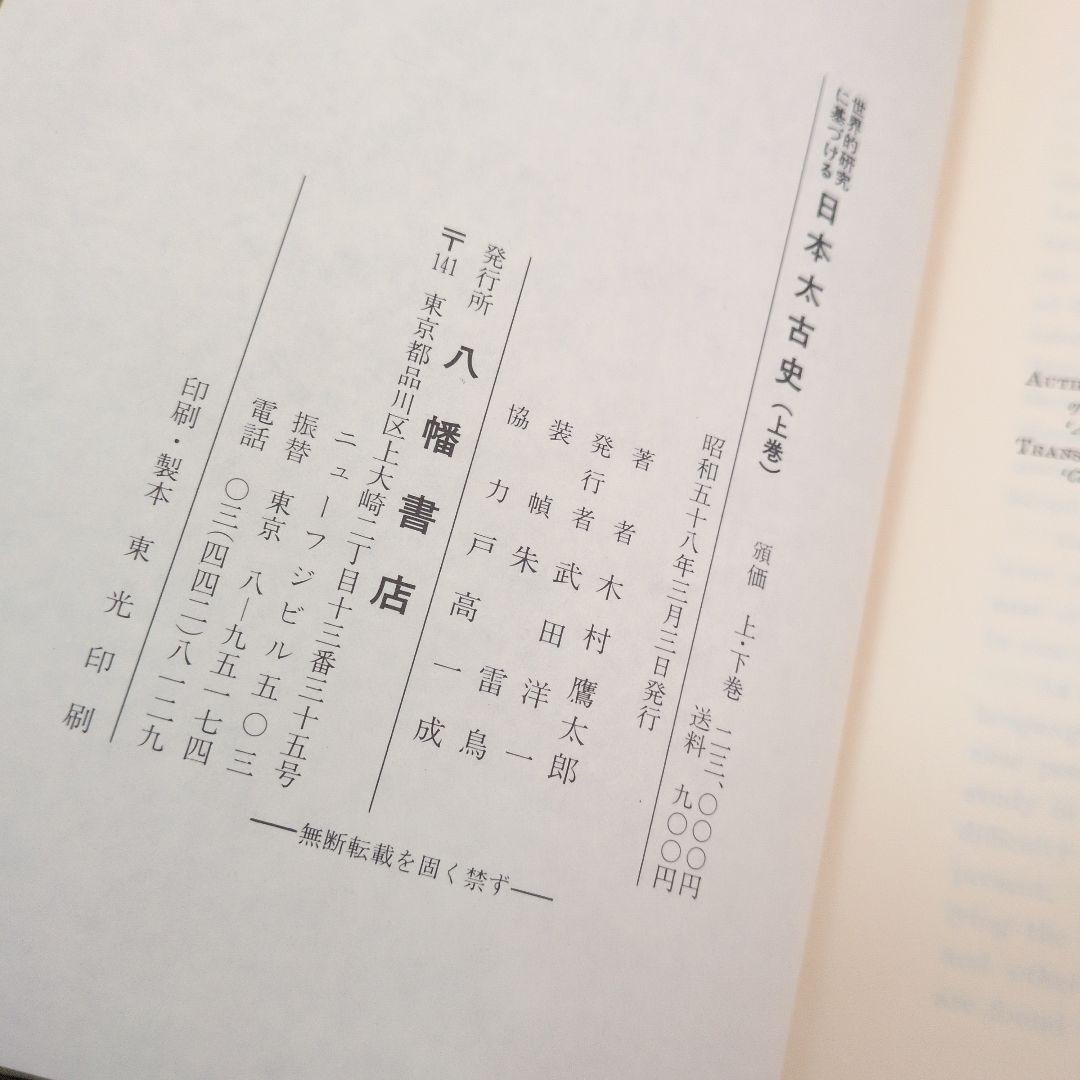 世界的研究に基づける 日本太古史(上巻)
頒価 上・下巻 二三、〇〇〇円
送料 九〇〇円
昭和五十八年三月三日発行
著者 木村鷹太郎
発行者 武田洋一
装幀 朱雷鳥
協力 戸高一成
発行所 八幡書店
〒141 東京都品川区上大崎二丁目十三番三十五号
ニューフジビル五〇三
振替 東京 八―九五一七四
電話 〇三(四四二)八一二九
印刷・製本 東光印刷
―無断転載を固く禁ず―
TRANS